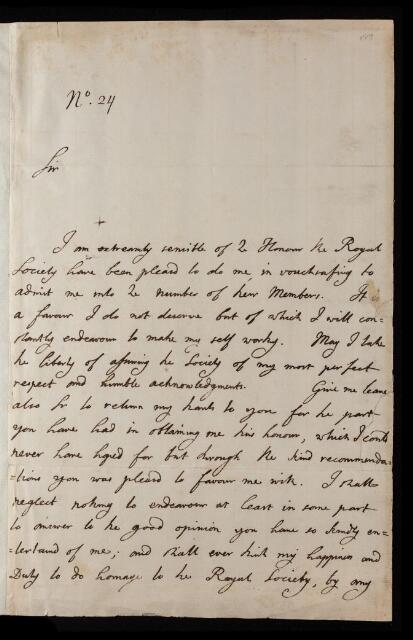 No. 24
Sir
I am extreamly sensible of the Honour the Royal
Society have been pleasd to do me in vouchsafing to
admit me into the number of their Members. It is
a favour I do not deserve but of which I will con-
stantly endeavour to make my self worthy. May I take
the liberty of assuring the Society of my most perfect
respect and humble acknowledgments. Give me leave
also Sr to return my thanks to you for the part
you have had in obtaining me this honour, which I could
never have hoped for but through the kind recommenda-
-tions you was pleasd to favour me with. I shall
neglect nothing to endeavour at least in some part
to answer to the good opinion you have so kindly en-
-tertaind of me; and shall ever think my happiness and
Duty to do homage to the Royal Society, by any